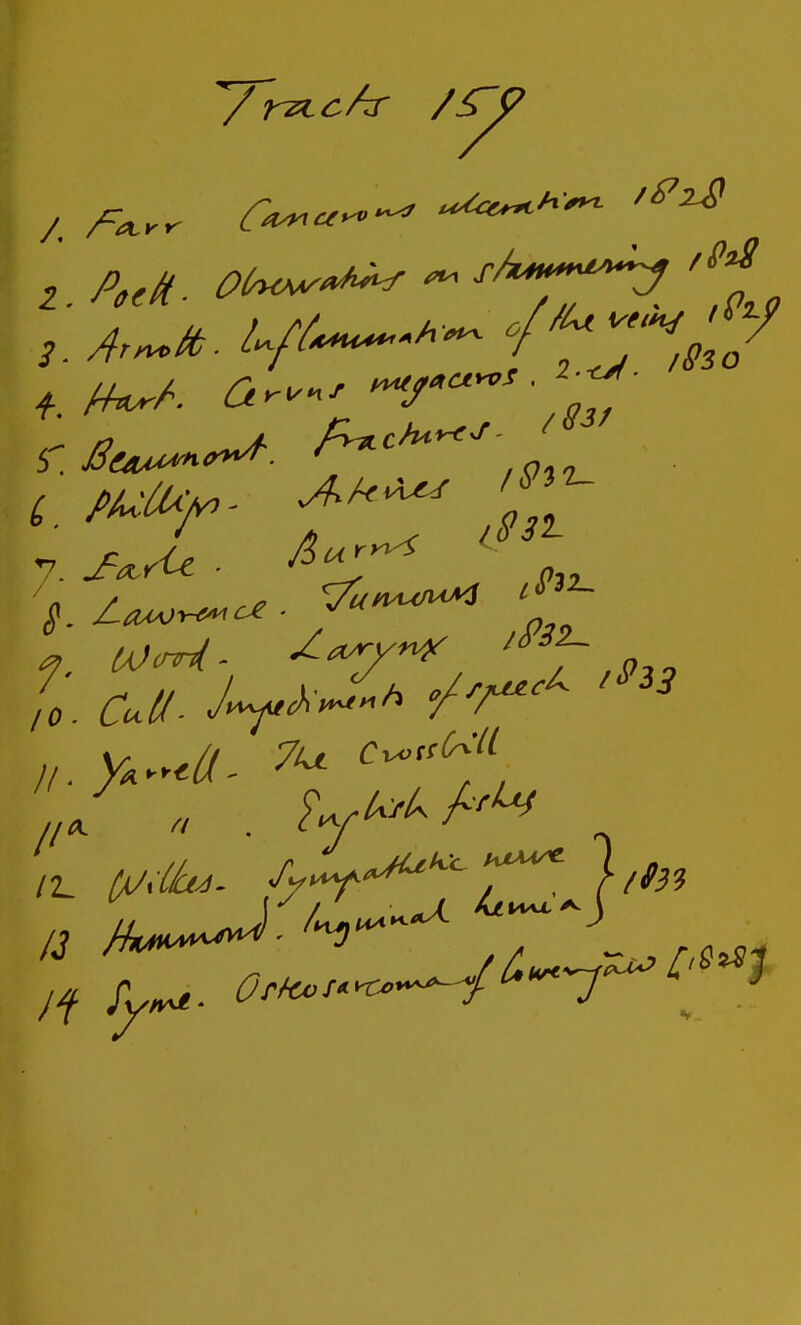 Tracts 159
1. Farr Cancerous ulceration 1828
2. Poett. Observations on stammering 1828
3. Arnott. Inflammation of the veins 1829
4. Hart. Cervus megaceros. 2-ed. 1830
5. Beaumont. Fractures. 1831
6. Phillips - Arteries 1832
7. Earle. Burns 1832
8. Lawrence. Tumours 1832
9. Wood - Larynx 1832
10. Cull. Impediments of speech 1833
11. Yarrell - The Crossbill
11a " . English fishes
12 Wilkes. Sympathetic nerve
13 Hammond. Inguinal hernia } 1833
14 Syme. Osteosarcoma of lower jaw [1828]